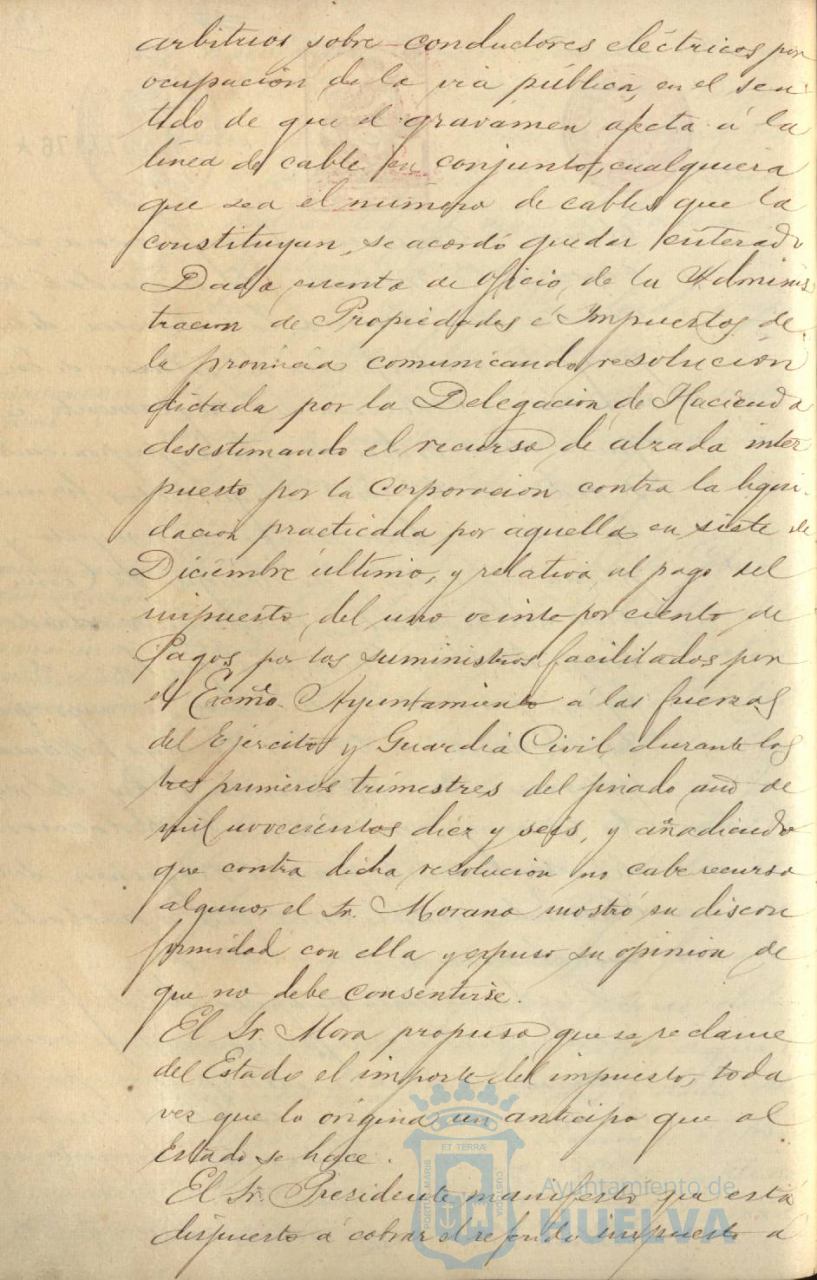 arbitrios sobre conductores eléctricos por
ocupación de la via pública, en el sen-
tido de que el gravámen afecta á la
línea de cable en conjunto, cualquiera
que sea el número de cables que la
constituyan, se acordó quedar enterado
Dada cuenta de oficio de la Adminis
tracion de Propiedades é Impuestos de
la provincia comunicando resolución
dictada por la Delegacion de Hacienda
desestimando el recurso de alzada inter
puesto por la Corporacion contra la liqui-
dacion practicada por aquella en siete de
Diciembre último, y relativa al pago del
impuesto del uno veinte por ciento de
Pagos por los suministros facilitados por
el Excmo. Ayuntamiento á las fuerzas
del Ejército y Guardia Civil durante los
tres primeros trimestres del pasado año de
mil novecientos diez y seis, y añadiendo
que contra dicha resolucion no cabe recurso
alguno, el Sr. Morano mostró su discon
formidad con ella y expuso su opinion de
que no debe consentirse.
El Sr. Mora propuso que se reclame
del Estado el importe del impuesto, toda
vez que lo origina un anticipo que al
Estado se hace.
El Sr. Presidente manifestó que está
dispuesto á cobrar el referido impuesto á
PORTUS MARIS
ET TERRÆ
CUSTODIA
Ayuntamiento de
HUELVA